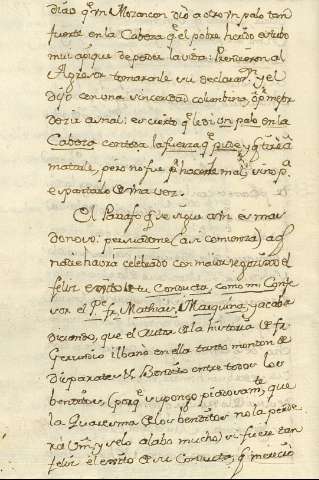 diaõ q.e vn Morancon diò a otro vn palo tan
fuerte en la Cabeza q.e el pobre herido estubo
mui a pique de perder la vida: Prendieron al
Agresor tomaronle su declaraz.n y el
dijo con una sinceridad colombina,
es cierto q.e le di un palo en la
Cabeza con toda la fuerza q.e pude, y
matarle, pero no fue p.r hacerle mal, sino p.a
espantarlo de una vez.
El Parrafo q.e se sigue a in es mas
donoso: persuadome (asi comienza) a q.e
nadie habrà celebrado con maior regocijo el
feliz exito de su Conducta, como mi Confe
sor el P.e fr. Mathias Marquina; y acaba
diciendo, que el Autor de la historia de fr.
Gerundio llbanò en ella tanto monton de
disparates el Bendito entre todos los
benditos, (porq.e supongo piadosam.te que
la Quaresma de los benditos no la perde
rà Vm., y se lo alabo mucho) si fuere tan
feliz el exito de su Conducta, q.e mereciò